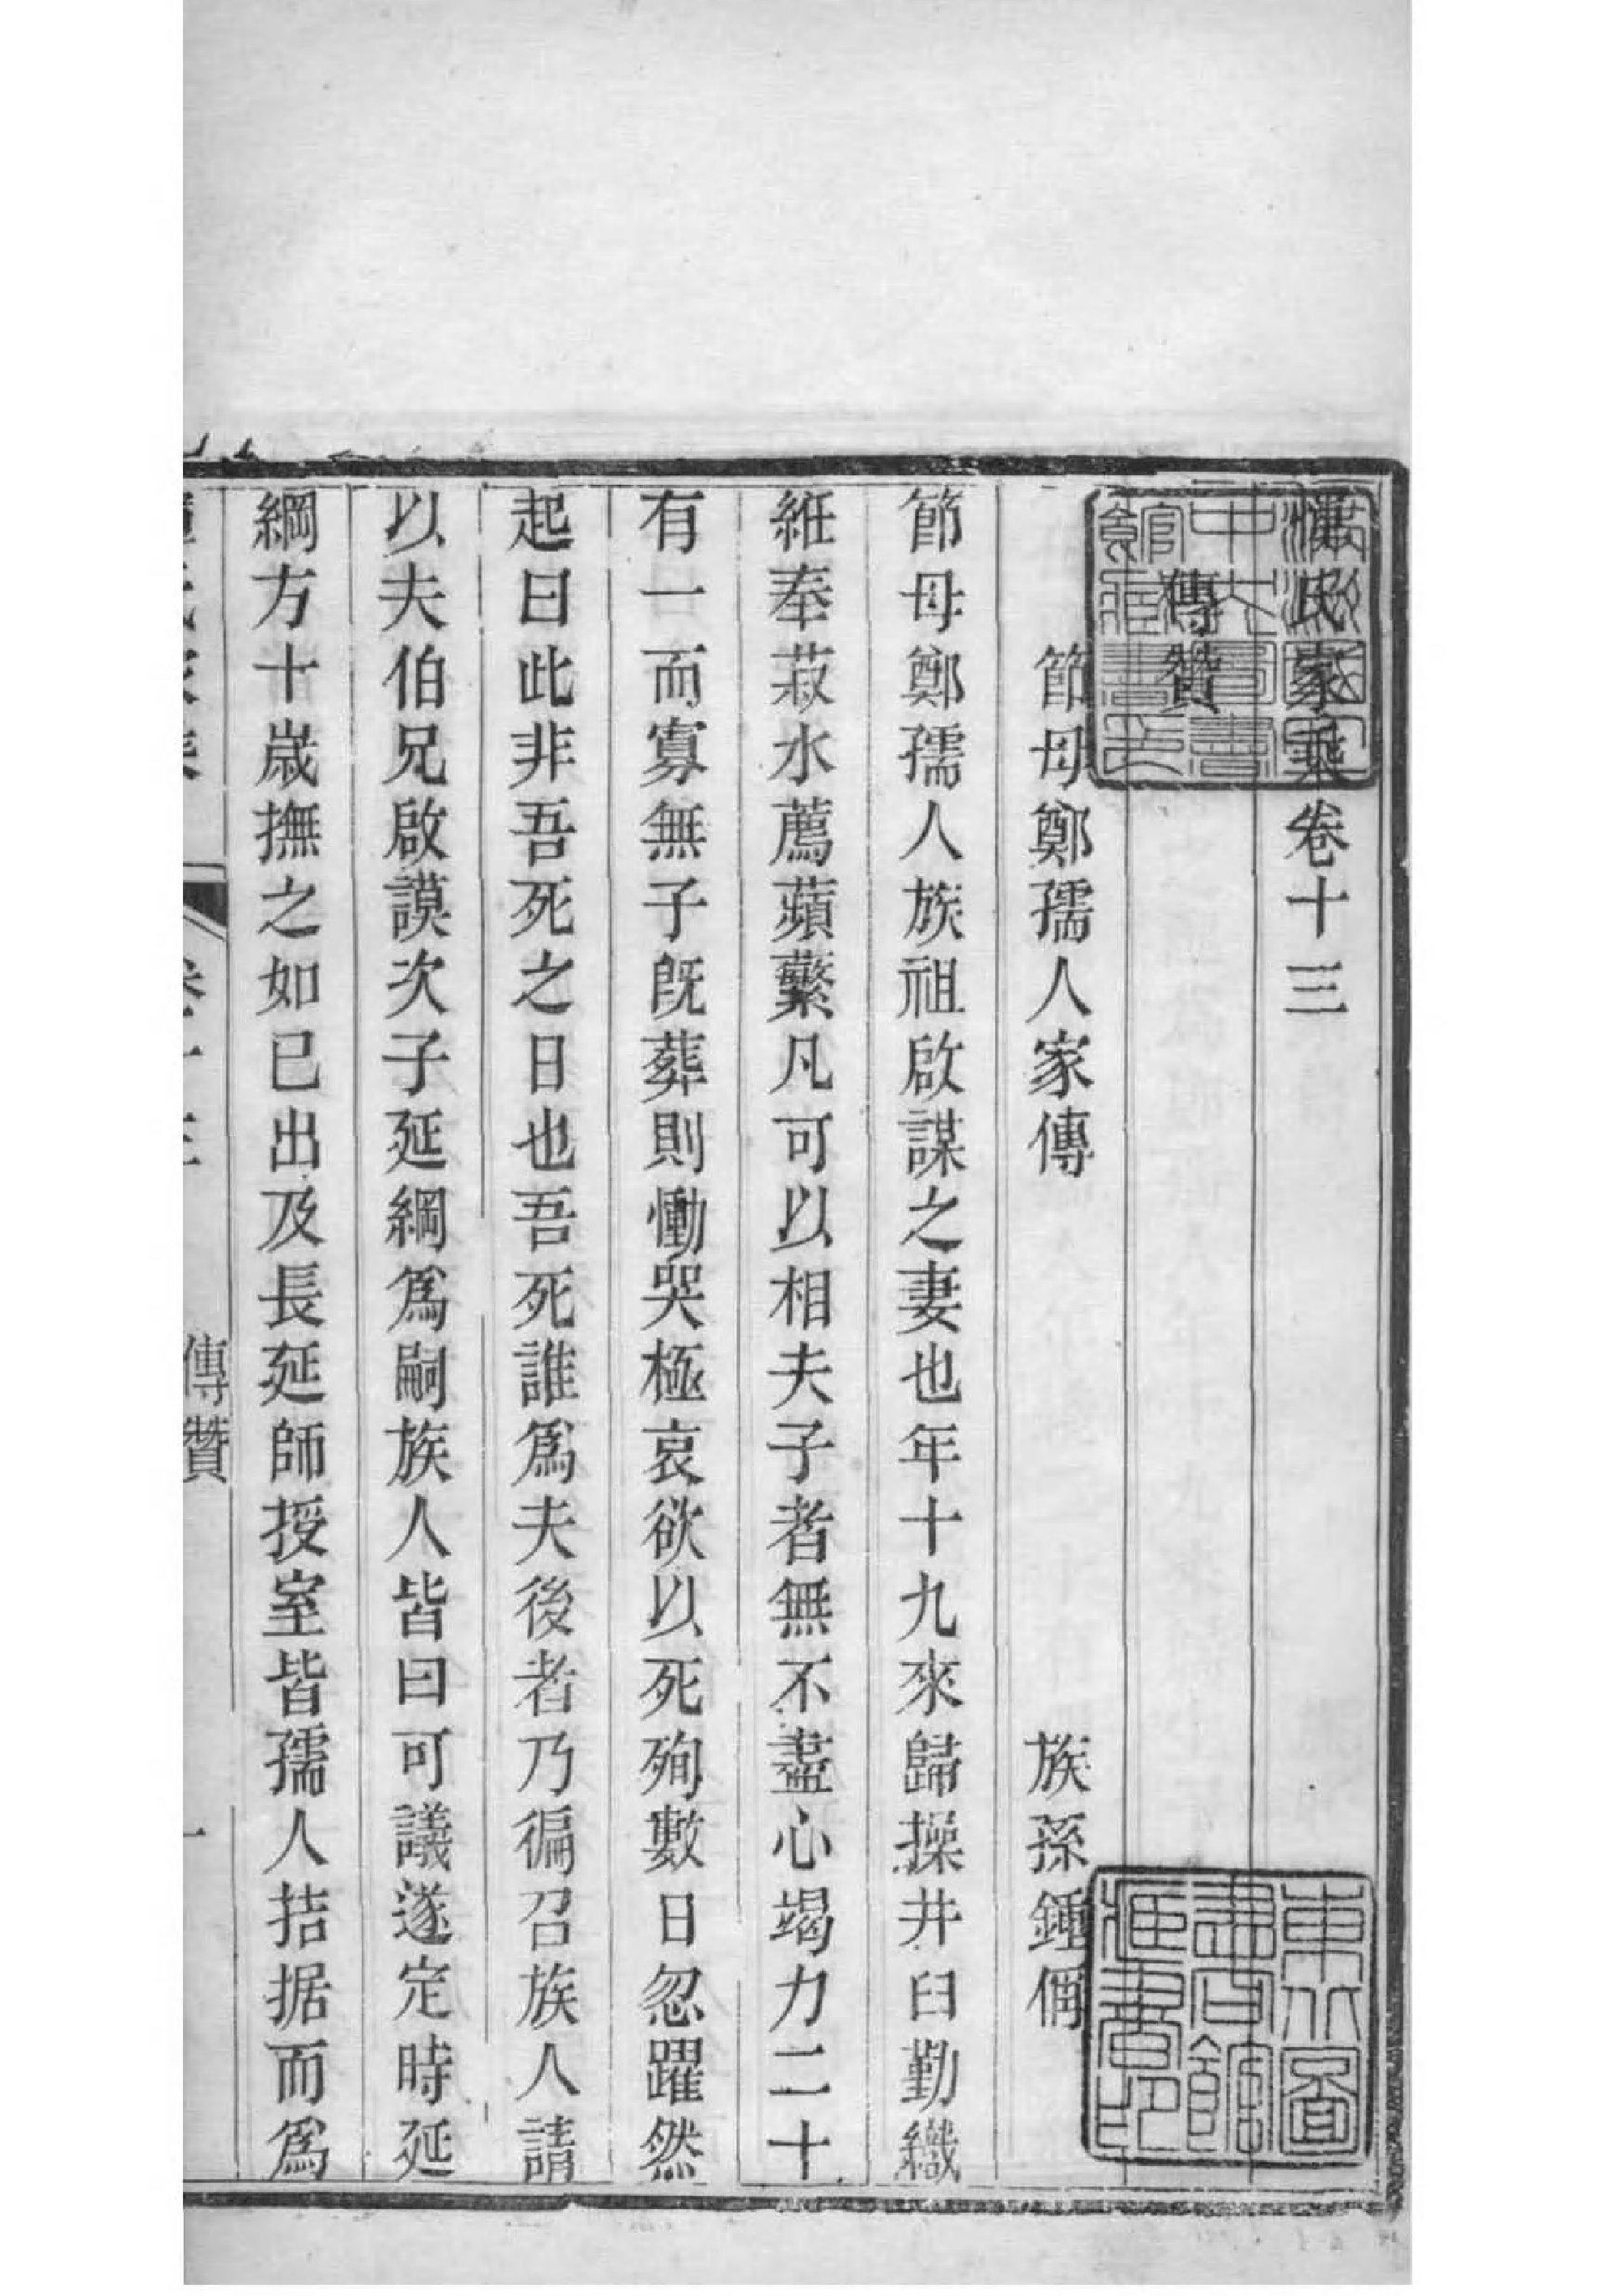 氏家乘卷十三
傳贊
節母鄭孺人家傳
族孫鍾
節母鄭孺人族祖啟謀之妻也年十九來歸操井臼勤織
絍奉菽水薦蘋蘩凡可以相夫子者無不盡心竭力二十
有一而寡無子既葬則慟哭極哀欲以死殉數日忽躍然
起曰此非吾死之日也吾死誰爲夫後者乃徧召族人請
以夫伯兄啟謨次子延綱爲嗣族人皆曰可議遂定時延
綱方十歲撫之如已出及長延師授室皆孺人拮据而爲
傳贊
一
東北圖書館藏書印